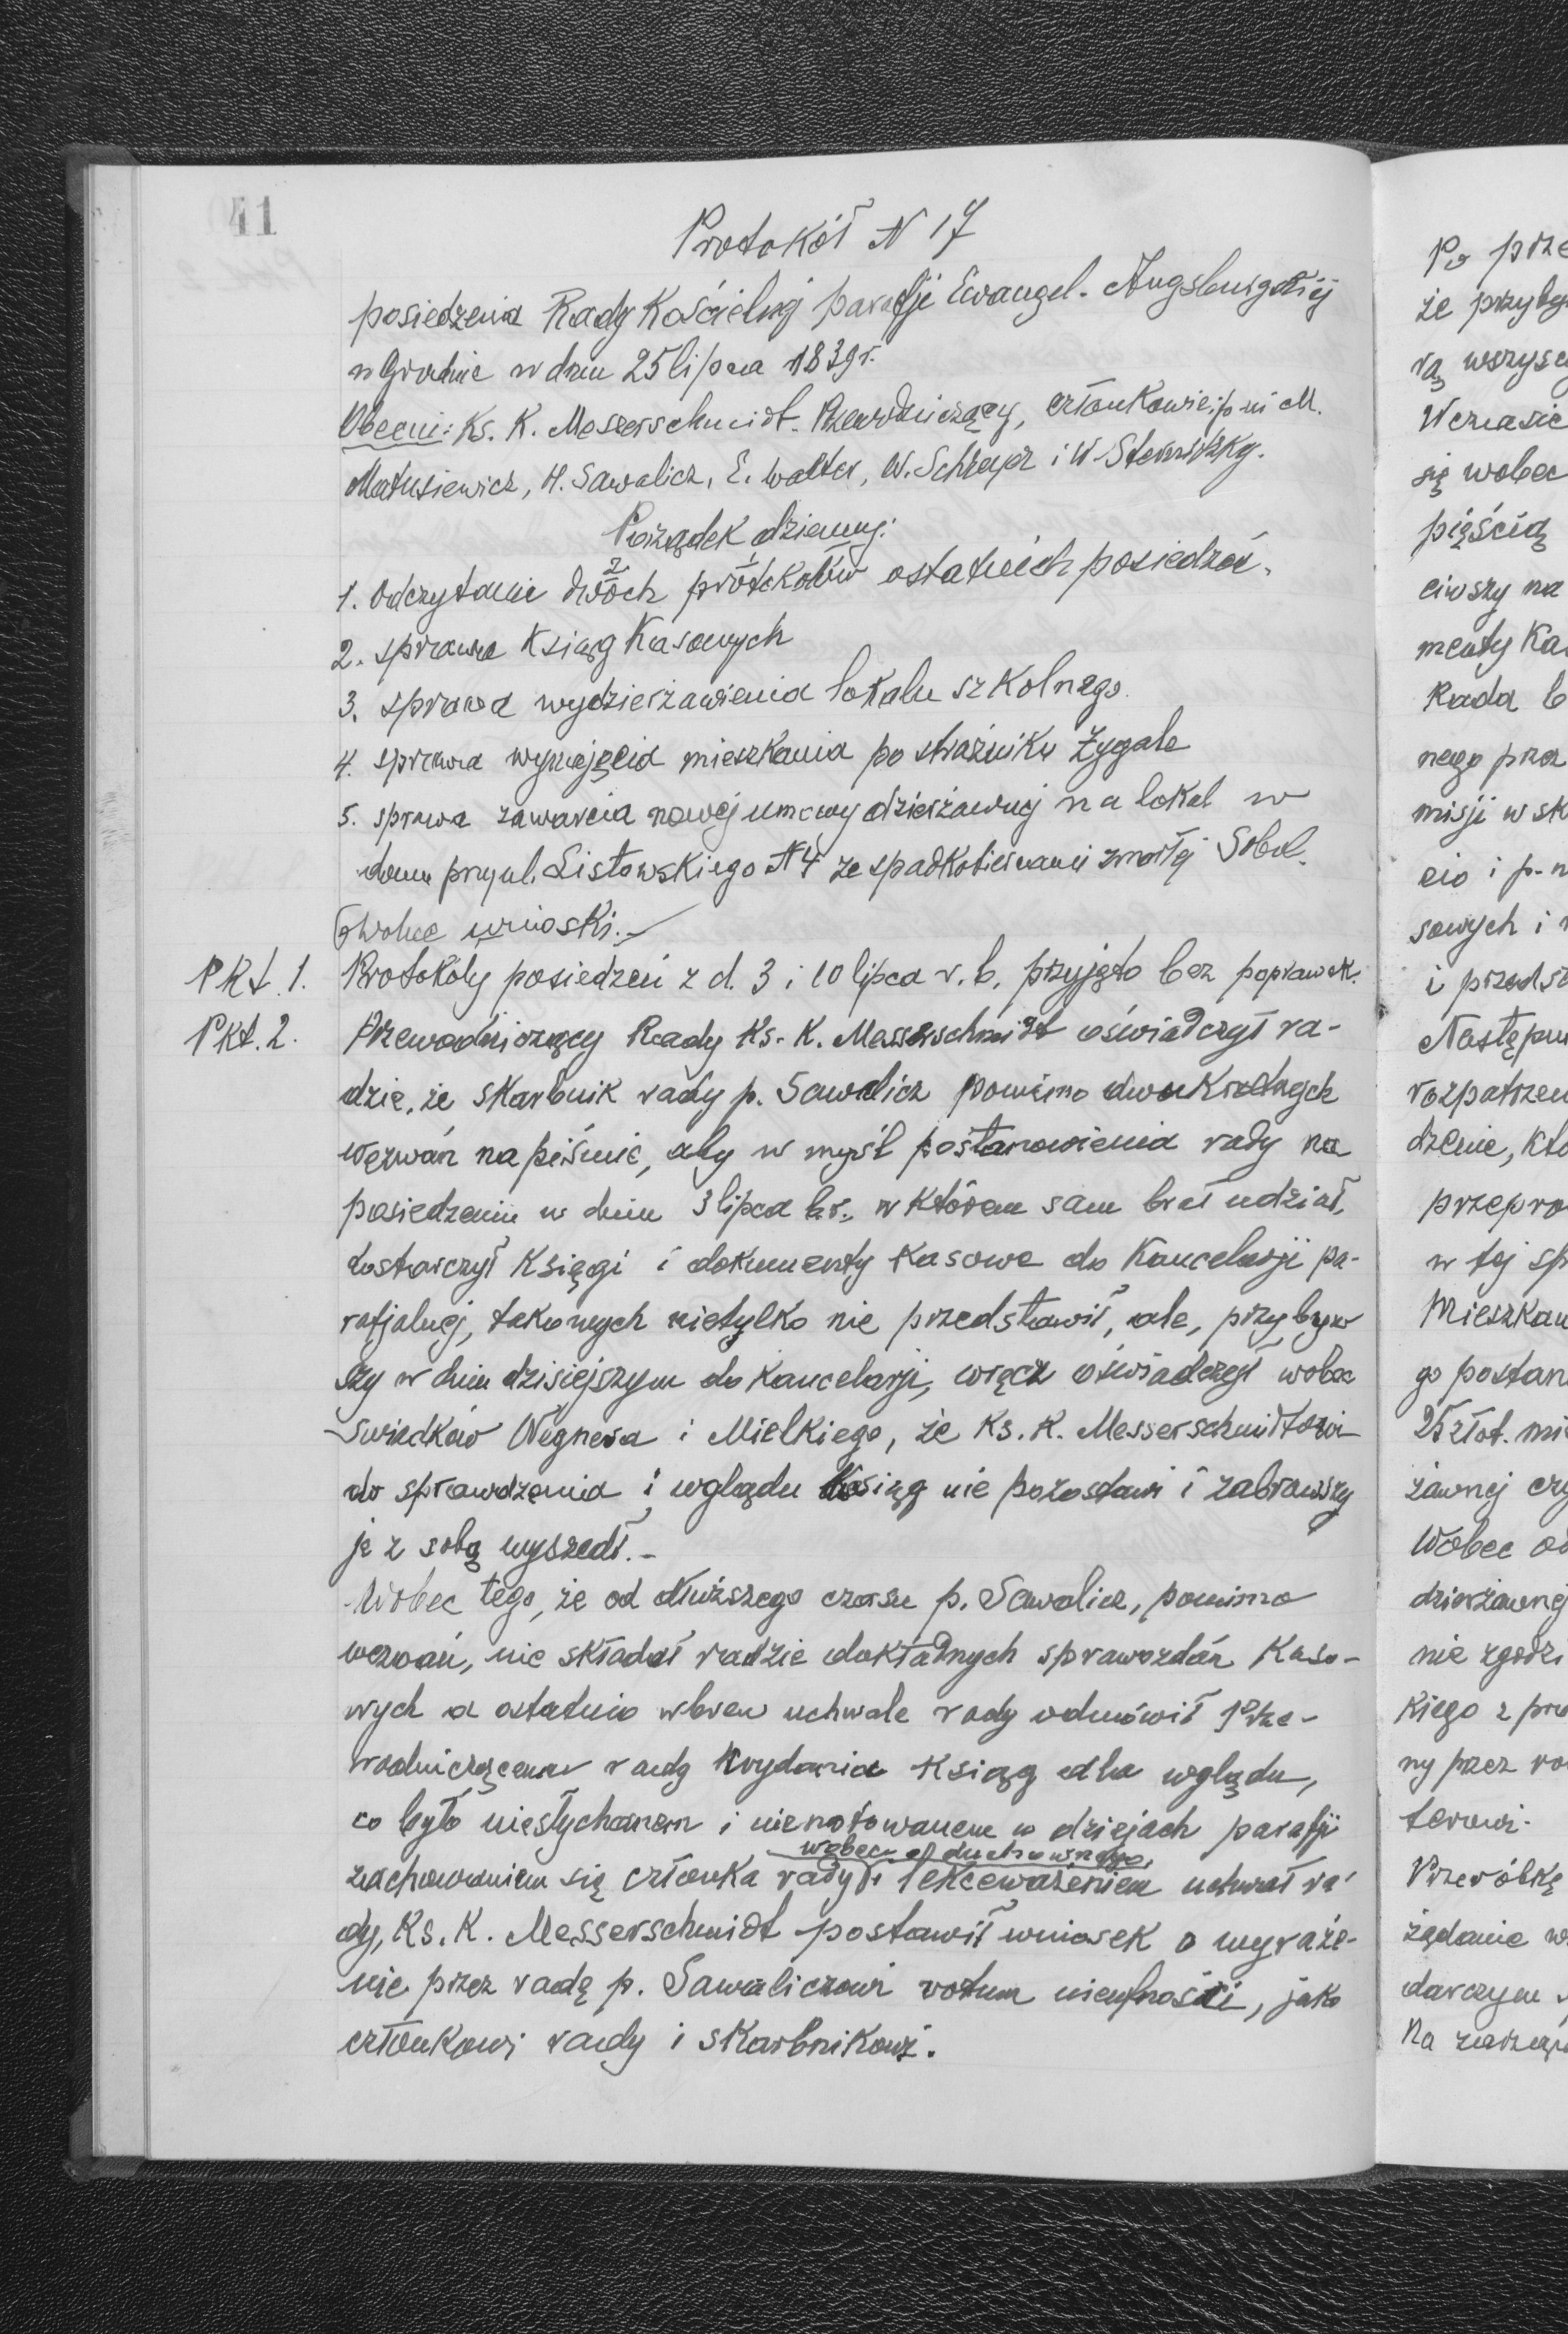 41
Protokół N 17
posiedzenia Rady Kościelnej parafji Ewangel. Augsburgskiej
w Grodnie w dniu 25 lipca 1839 r.
Obecni: Ks. K. Messerschmidt. Przewodniczący, członkowie: p-ni M.
Matusiewicz, H. Sawalicz, E. Walter, W. Schreyer i W.
Porządek dzienny:
1. Odczytanie dwóch 2 prótokołów ostatnich posiedzeń.
2. sprawa Ksiąg Kasowych
3. sprawa wydzierżawienia lokalu szkolnego.
4. sprawa wynajęcia mieszkania po strażniku Zygale
5. sprawa zawarcia nowej umowy dzierżawnej na lokal w
domu przy ul. Listowskiego N 4 ze spadkobiercami zmarłej Sobol.
6 Wolne wnioski.
Pkt. 1. Protokoły posiedzeń z d. 3 i 10 lipca r. b. przyjęto bez poprawek.
Pkt. 2. Przewodniczący Rady Ks. K. Messerschmidt oświadczył ra-
dzie, że skarbnik rady p. Sawalicz pomimo dwukrotnych
wezwań na piśmie, aby w myśl postanowienia rady na
posiedzeniu w dniu 3 lipca br., w którem sam brał udział,
dostarczył Księgi i dokumenty Kasowe do Kancelarji pa-
rafjalnej, takowych nietylko nie przedstawił, ale, przybyw
szy w dniu dzisiejszym do Kancelarji, wręcz oświadczył wobec
swiadków Wegnera i Mielkiego, że Ks. K. Messerschmidtowi
do sprawdzenia i wglądu Ksiąg nie pozostawi i zabrawszy
je z sobą wyszedł.-
Wobec tego, że od dłuższego czasu p. Sawalicz, pomimo
wezwań, nie składał radzie dokładnych sprawozdań Kaso-
wych a ostatnio wbrew uchwale rady odmówił Prze-
wodniczącemu rady wydania Ksiąg dla wglądu,
co było niesłychanem i nienotowanem w dziejach parafji
wobec duchownego,
zachowaniem się członka rady i lekceważeniem uchwał ra-
dy, Ks. K. Messerschmidt postawił wniosek o wyraże-
nie przez radę p. Sawaliczowi votum nieufności, jako
członkowi rady i skarbnikowi.
Po prze
że przyby
rą wszysc
Wczasie
się wobec
pięścią
ciwszy na
menty Ka
Rada b
nego prze
misji w sk
cio i p-n
sowych i
i przedst
Następn
rozpatrzen
dzenie, kto
przepro
w tej sp
Mieszkan
go postan
25 złot. mie
żawnej czy
Wobec od
dzierżawnej
nie zgodzi
kiego z pra
ny przez ra
terowi.
Przeróbkę
żądanie w
darczym
Na zarząd